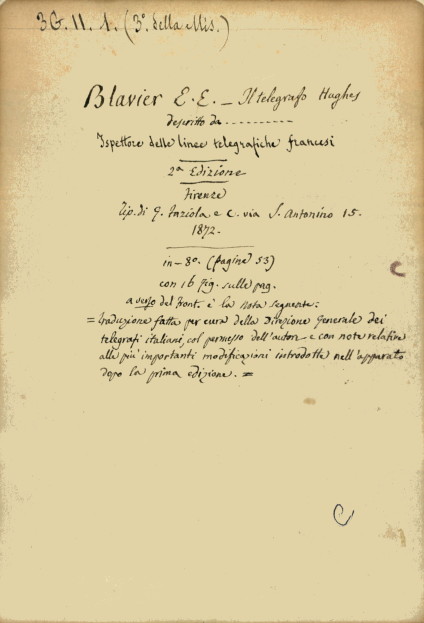 3G. II. 1. (3º. della Mis.)
Blavier E. E. — Il telegrafo Hughes
descritto da ----------
Ispettore delle linee telegrafiche francesi
2ª Edizione
Firenze
Tip. di G. e C. via S. Antonino 15.
1872.
in-8º. (pagine 53)
con 16 fig. sulle pag.
a verso del front. è la nota seguente:
= traduzione fatta per cura della Direzione Generale dei
telegrafi italiani, col permesso dell'autore e con note relative
alle più importanti modificazioni introdotte nell'apparato
dopo la prima edizione. =